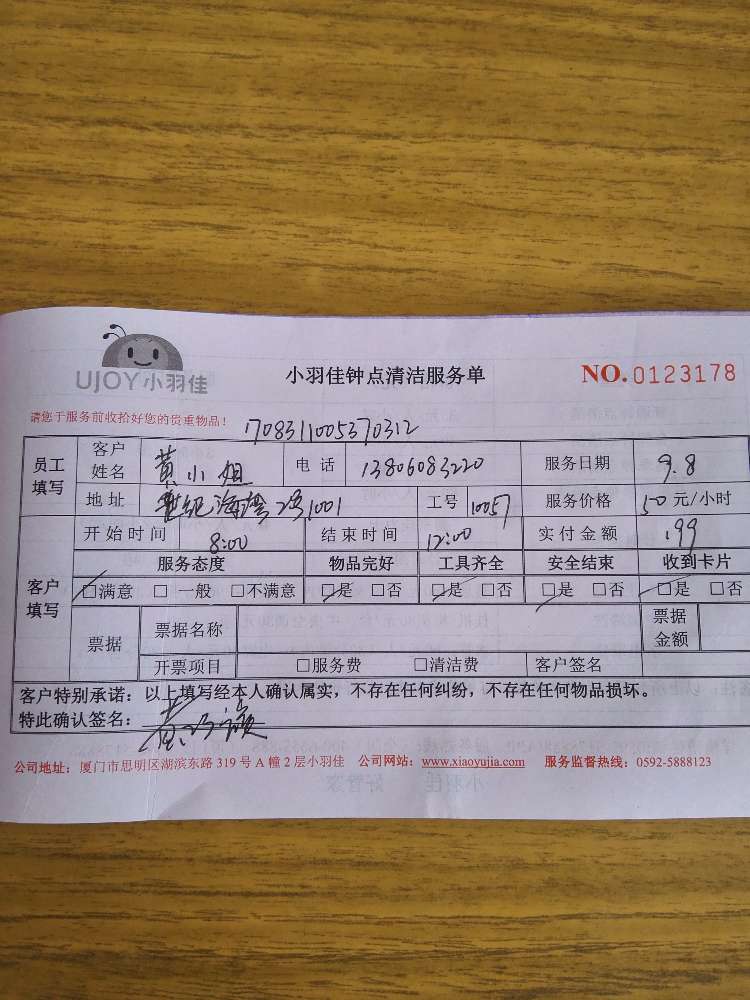 UJOY小羽佳
小羽佳钟点清洁服务单
NO.0123178
请您于服务前收拾好您的贵重物品!
1708311005370312
员工填写 客户姓名 黄小姐 电话 13806083220 服务日期 9.8
地址 世纪海湾 1001 工号 10057 服务价格 50元/小时
客户填写 开始时间 8:00 结束时间 12:00 实付金额 199
服务态度 物品完好 工具齐全 安全结束 收到卡片
□满意 □一般 □不满意 □是 □否 □是 □否 □是 □否 □是 □否
票据 票据名称 票据金额
开票项目 □服务费 □清洁费 客户签名
客户特别承诺:以上填写经本人确认属实,不存在任何纠纷,不存在任何物品损坏。
特此确认签名:
公司地址:厦门市思明区湖滨东路 319 号 A 幢 2 层小羽佳 公司网站:www.xiaoyujia.com 服务监督热线:0592-5888123